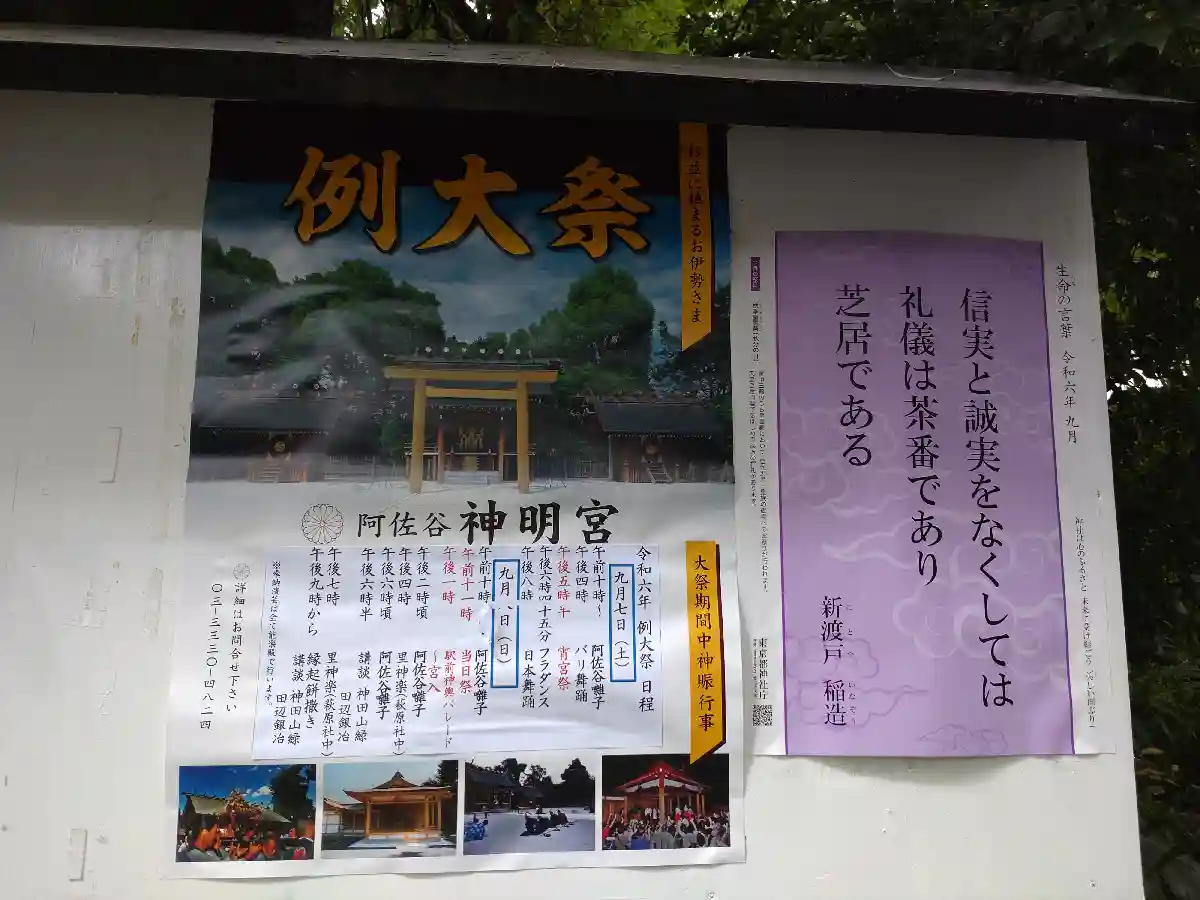 例大祭
杉並に鎮まるお伊勢さま
阿佐谷 神明宮
大祭期間中神賑行事
令和六年 例大祭 日程
九月七日（土）
午前十時～ 阿佐谷囃子
午後四時 バリ舞踊
午後五時半 宵宮祭
午後六時四十五分 フラダンス
午後八時 日本舞踊
九月八日（日）
午前十時 阿佐谷囃子
午前十一時 当日祭
午後一時 駅前神輿パレード
～宮入
午後二時頃 阿佐谷囃子
午後四時 里神楽（萩原社中）
午後六時頃 阿佐谷囃子
午後六時半 講談 神田山緑
田辺銀冶
午後七時 里神楽（萩原社中）
午後九時から 縁起餅撒き
講談 神田山緑
田辺銀冶
※奉納演芸は全て能楽殿で行います。
詳細はお問合せ下さい
〇三-三三三〇-四八二四
生命の言葉 令和六年 九月
信実と誠実をなくしては
礼儀は茶番であり
芝居である
新渡戸 稲造
にとべ いなぞう
東京都神社庁